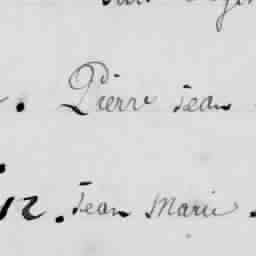 . Pierre jean
12. Jean Marie.